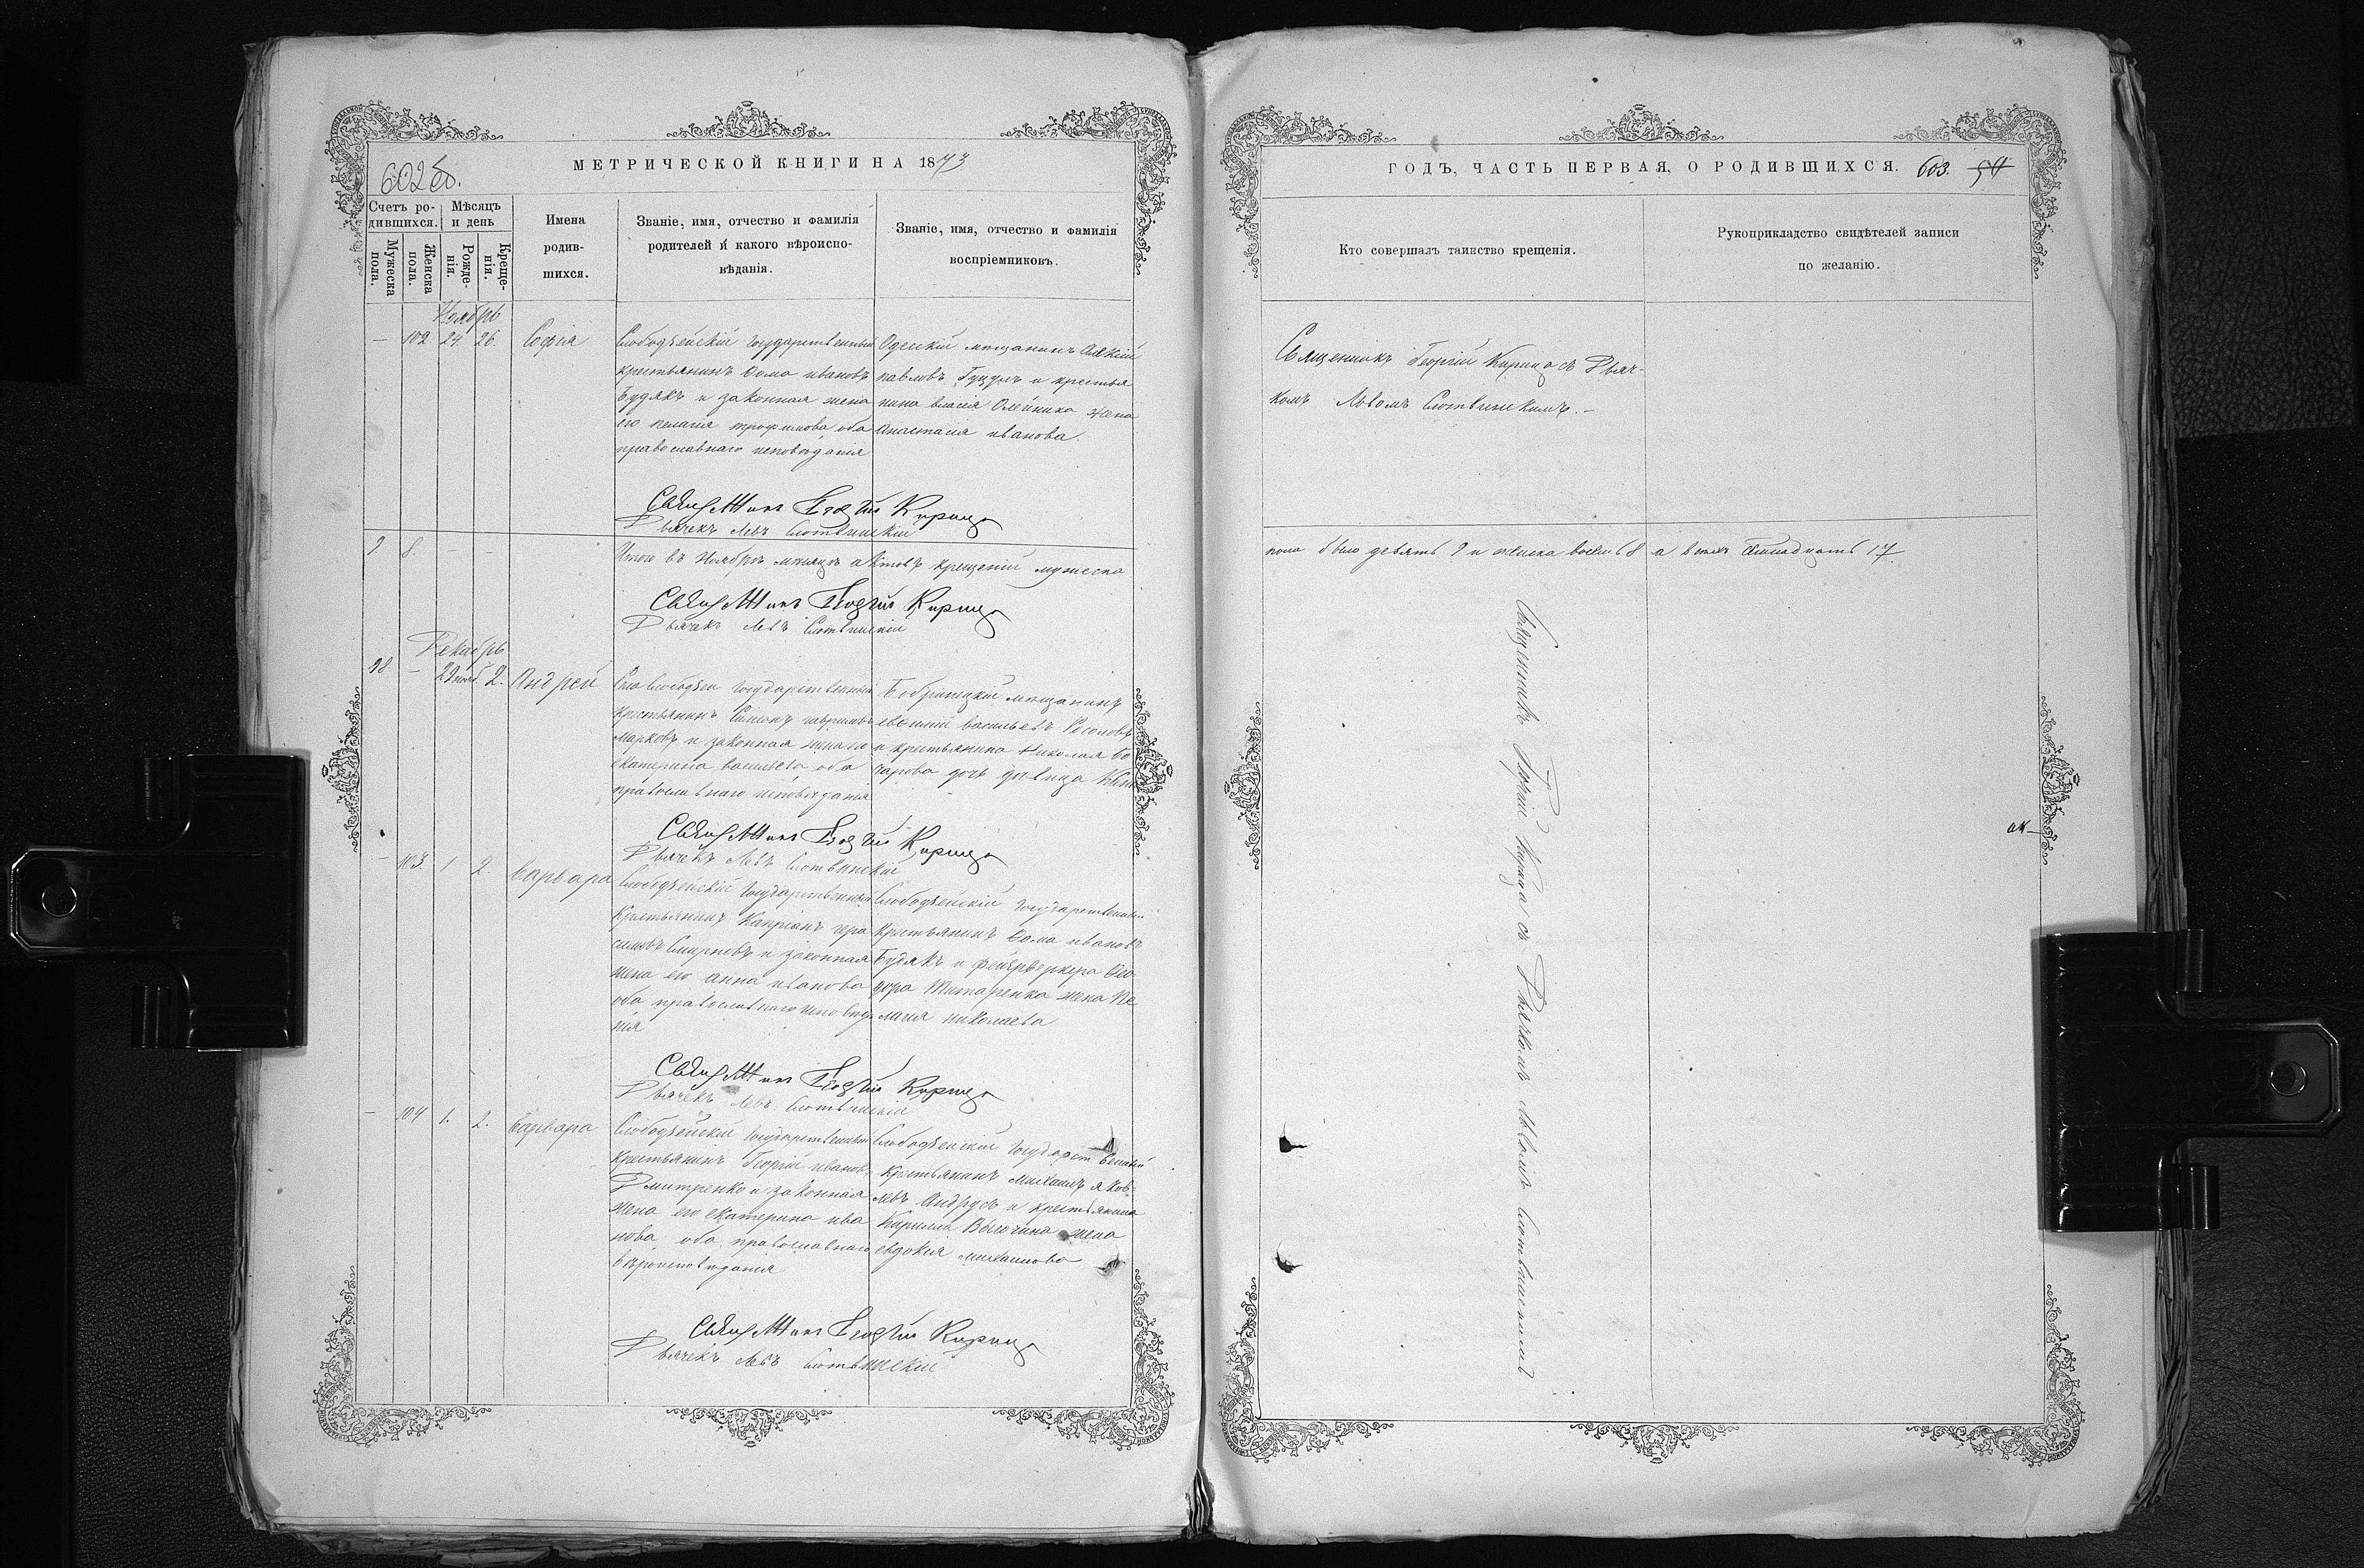 МЕТРИЧЕСКОЙ КНИГИ НА 1873
602 об.
Счетъ ро-
дившихся.
Мужеска
пола.
Женска
пола.
Мѣсяцъ
и день
Рожде-
нія.
Креще-
нія.
Имена
родив-
шихся.
Званіе, имя, отчество и фамилія
родителей и какого вѣроиспо-
вѣданія.
Званіе, имя, отчество и фамилія
воспріемниковъ.
Ноябрь
— 102 24. 26. Софія
Слободзейскій государственный
крестьянинъ Ѳома ивановъ
Будякъ и законная жена
его пелагія трофимова оба
православнаго исповѣданія
Одескій мещанинъ
павловъ Гуцулъ и крестья
нина власія Олейника жена
Анастасія иванова.
Священникъ Георгій Кирица
Дьячекъ Левъ Слотвинскій
9. 8. — —
Итого въ Ноябрѣ месяцѣ актовъ крещеній мужеска
Священникъ Георгій Кирица
Дьячекъ Левъ Слотвинскій
Декабрь
98 — 29 нояб. 2. Андрей
Села Слободзеи государственный
крестьянинъ Симеонъ гавриловъ
Марковъ и законная жена его
екатерина васильева оба
православнаго исповѣданія
Бобринецкій мещанинъ
евѳимій васильевъ
и крестьянина Николая Бо
чарова дочь девица
Священникъ Георгій Кирица
Дьячекъ Левъ Слотвинскій
— 103. 1 2. Варвара
Слободзейскій государственный
Крестьянинъ Капріанъ гера
симовъ Смирновъ и законная
жена его анна иванова
оба православнаго исповѣда
нія
Слободзейскій государственный
Крестьянинъ Ѳома ивановъ
Будякъ и фейерверкера Ѳео
дора Титаренка жена Пе
лагія николаева
Священникъ Георгій Кирица
Дьячекъ Левъ Слотвинскій
— 104 1. 2. Варвара
Слободзейскій государственный
крестьянинъ Георгій ивановъ
Дмитренко и законная
жена его екатерина ива
нова оба православнаго
вѣроисповѣданія
Слободзейскій государственный
крестьянинъ Михаилъ яков-
левъ Андрусъ и крестьянина
Кирилла жена
евдокія михаилова
Священникъ Георгій Кирица
Дьячекъ Левъ Слотвинскій
ГОДЪ, ЧАСТЬ ПЕРВАЯ, О РОДИВШИХСЯ. 603.
Кто совершалъ таинство крещенія.
Рукоприкладство свидѣтелей записи
по желанію.
Священникъ Георгій Кирица съ Дьяч-
комъ Львомъ Слотвинскимъ.-
пола было девять 9 и женска восемь 8 а всехъ семнадцать 17.
Священникъ Георгій Кирица съ Дьячкомъ Львомъ Слотвинскимъ